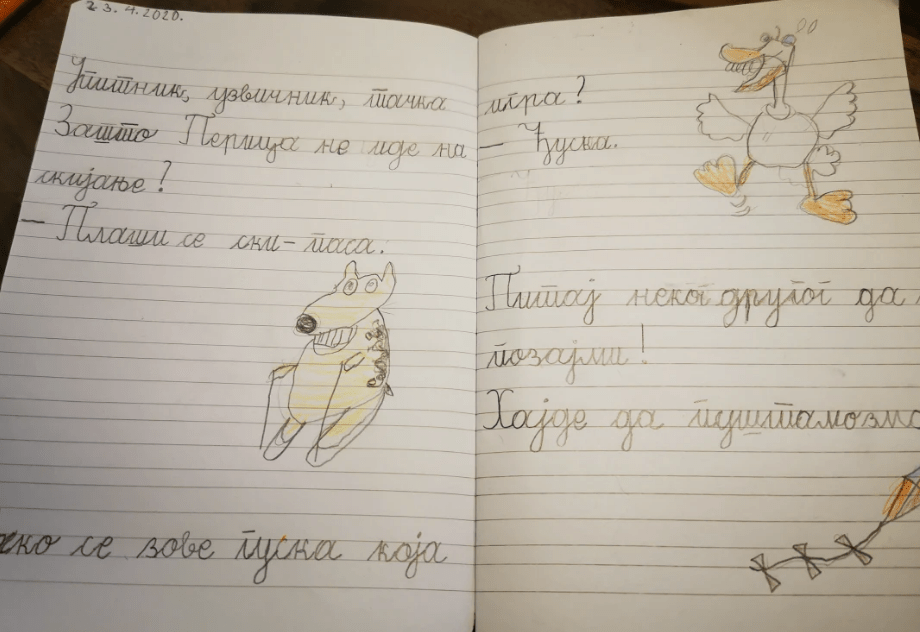 23.4.2020.
Упитник, узвичник, тачка
Зашто Перица не иде на
скијање?
– Плаши се ски-паса.
ако се зове гуска која
игра?
– Ђуска.
Питај неког другог да
позајми!
Хајде да пуштамо зма